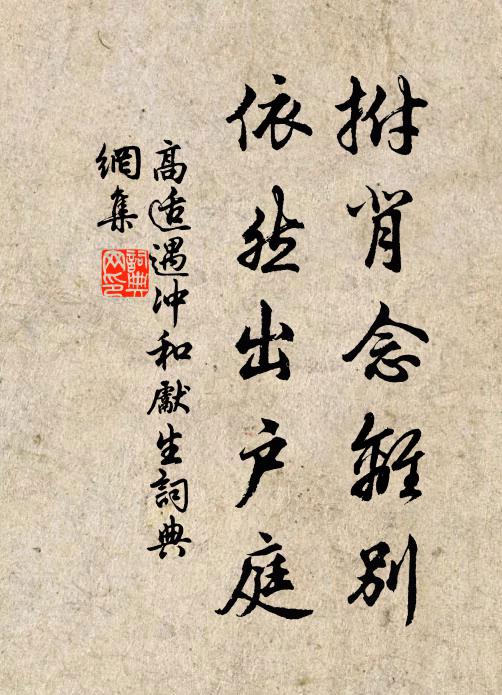 拊背念離別
依然出户庭
高适遇沖和獻生詞典
網集
詞典
网印